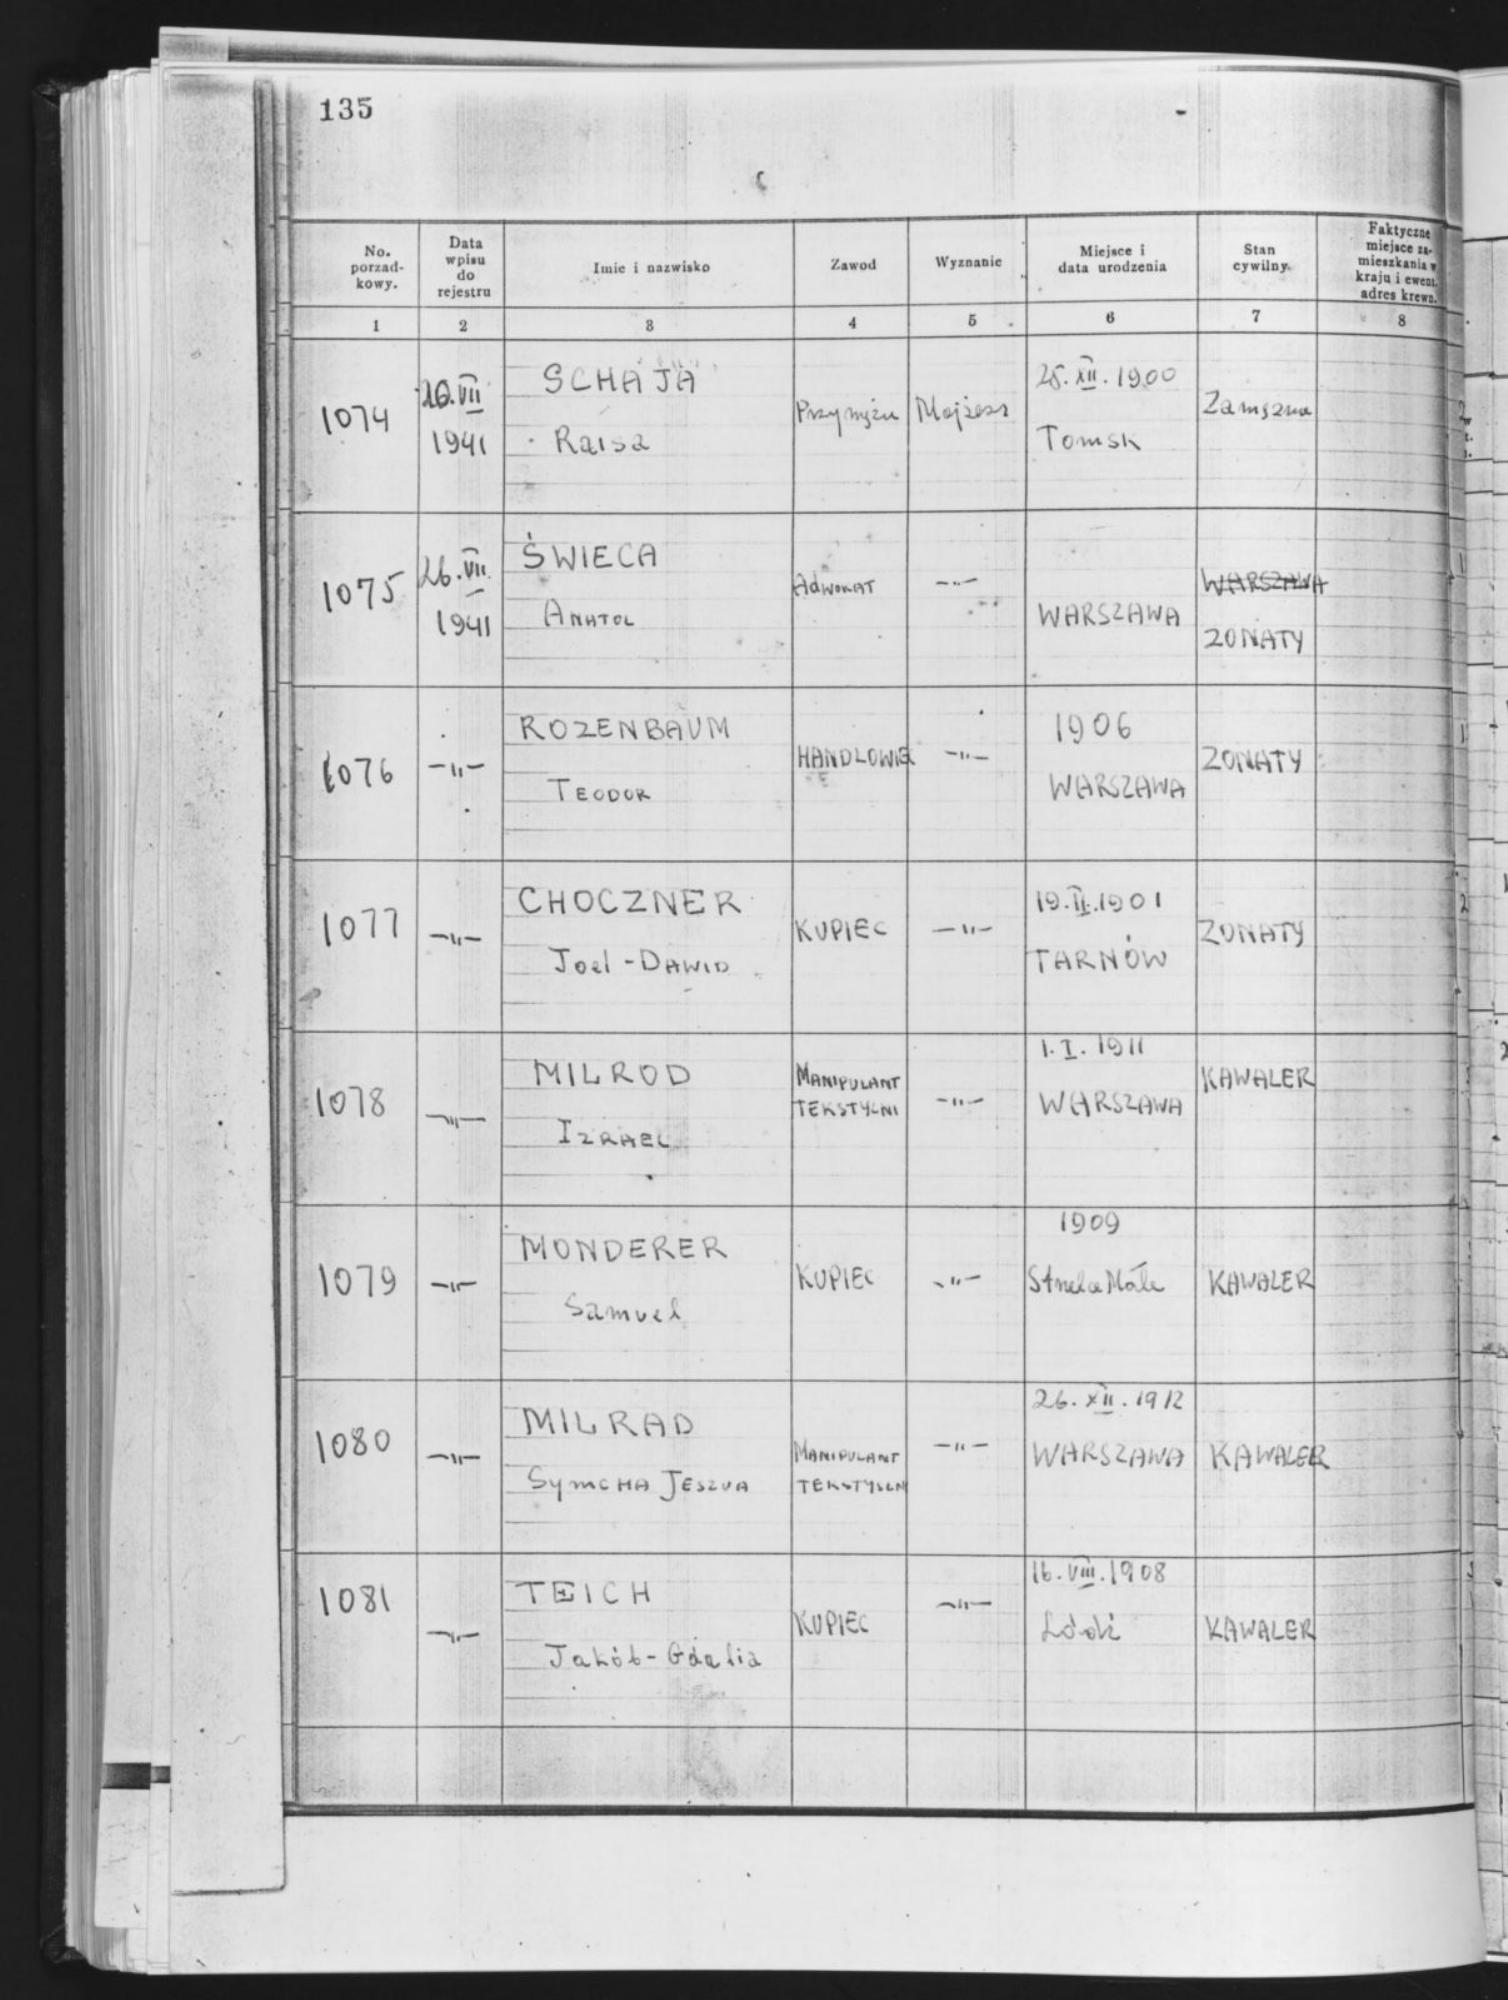 135
No. porzad- kowy.
Data wpisu do rejestru
Imie i nazwisko
Zawod
Wyznanie
Miejsce i data urodzenia
Stan cywilny.
Faktyczne miejsce za- mieszkania w kraju i ewent. adres krewn.
1 2 3 4 5 6 7 8
1074
26.VII 1941
SCHAJA
Raisa
Przy mężu
Mojżesz
25.XII.1900
Tomsk
Zamężna
1075
26.VII. 1941
ŚWIECA
ANATOL
ADWOKAT
-"-
WARSZAWA
WARSZAWA
ZONATY
1076
-"-
ROZENBAUM
TEODOR
HANDLOWIEC
-"-
1906
WARSZAWA
ZONATY
1077
-"-
CHOCZNER
Joel-DAWID
KUPIEC
-"-
19.II.1901
TARNÓW
ZONATY
1078
-"-
MILROD
IZRAEL
MANIPULANT
TEKSTYLNI
-"-
1.I.1911
WARSZAWA
KAWALER
1079
-"-
MONDERER
Samuel
KUPIEC
-"-
1909
KAWALER
1080
-"-
MILRAD
SymCHA JESZUA
MANIPULANT
-"-
26.XII.1912
WARSZAWA
KAWALER
1081
-"-
TEICH
Jakób-Gdalia
KUPIEC
-"-
16.VIII.1908
Łódź
KAWALER